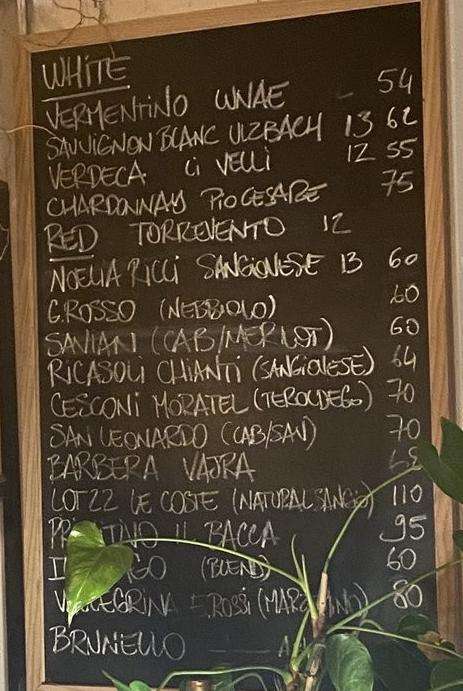 WHITE
VERMENTINO LUNAE - 54
SAUVIGNON BLANC ULZBACH 13 62
VERDECA LI VELLI 12 55
CHARDONNAY PIO CESARE 75
RED TORREVENTO 12
NOELIA RICCI SANGIOVESE 13 60
G.ROSSO (NEBBIOLO) 60
SAVIAN (CAB/MERLOT) 60
RICASOLI CHIANTI (SANGIOVESE) 64
CESCONI MORATEL (TEROLDEGO) 70
SAN LEONARDO (CAB/SAV) 70
BARBERA VAJRA 65
LOT22 LE COSTE (NATURAL SANGIO) 110
IL BACCA 95
(BLEND) 60
E.ROSSI 80
BRUNELLO